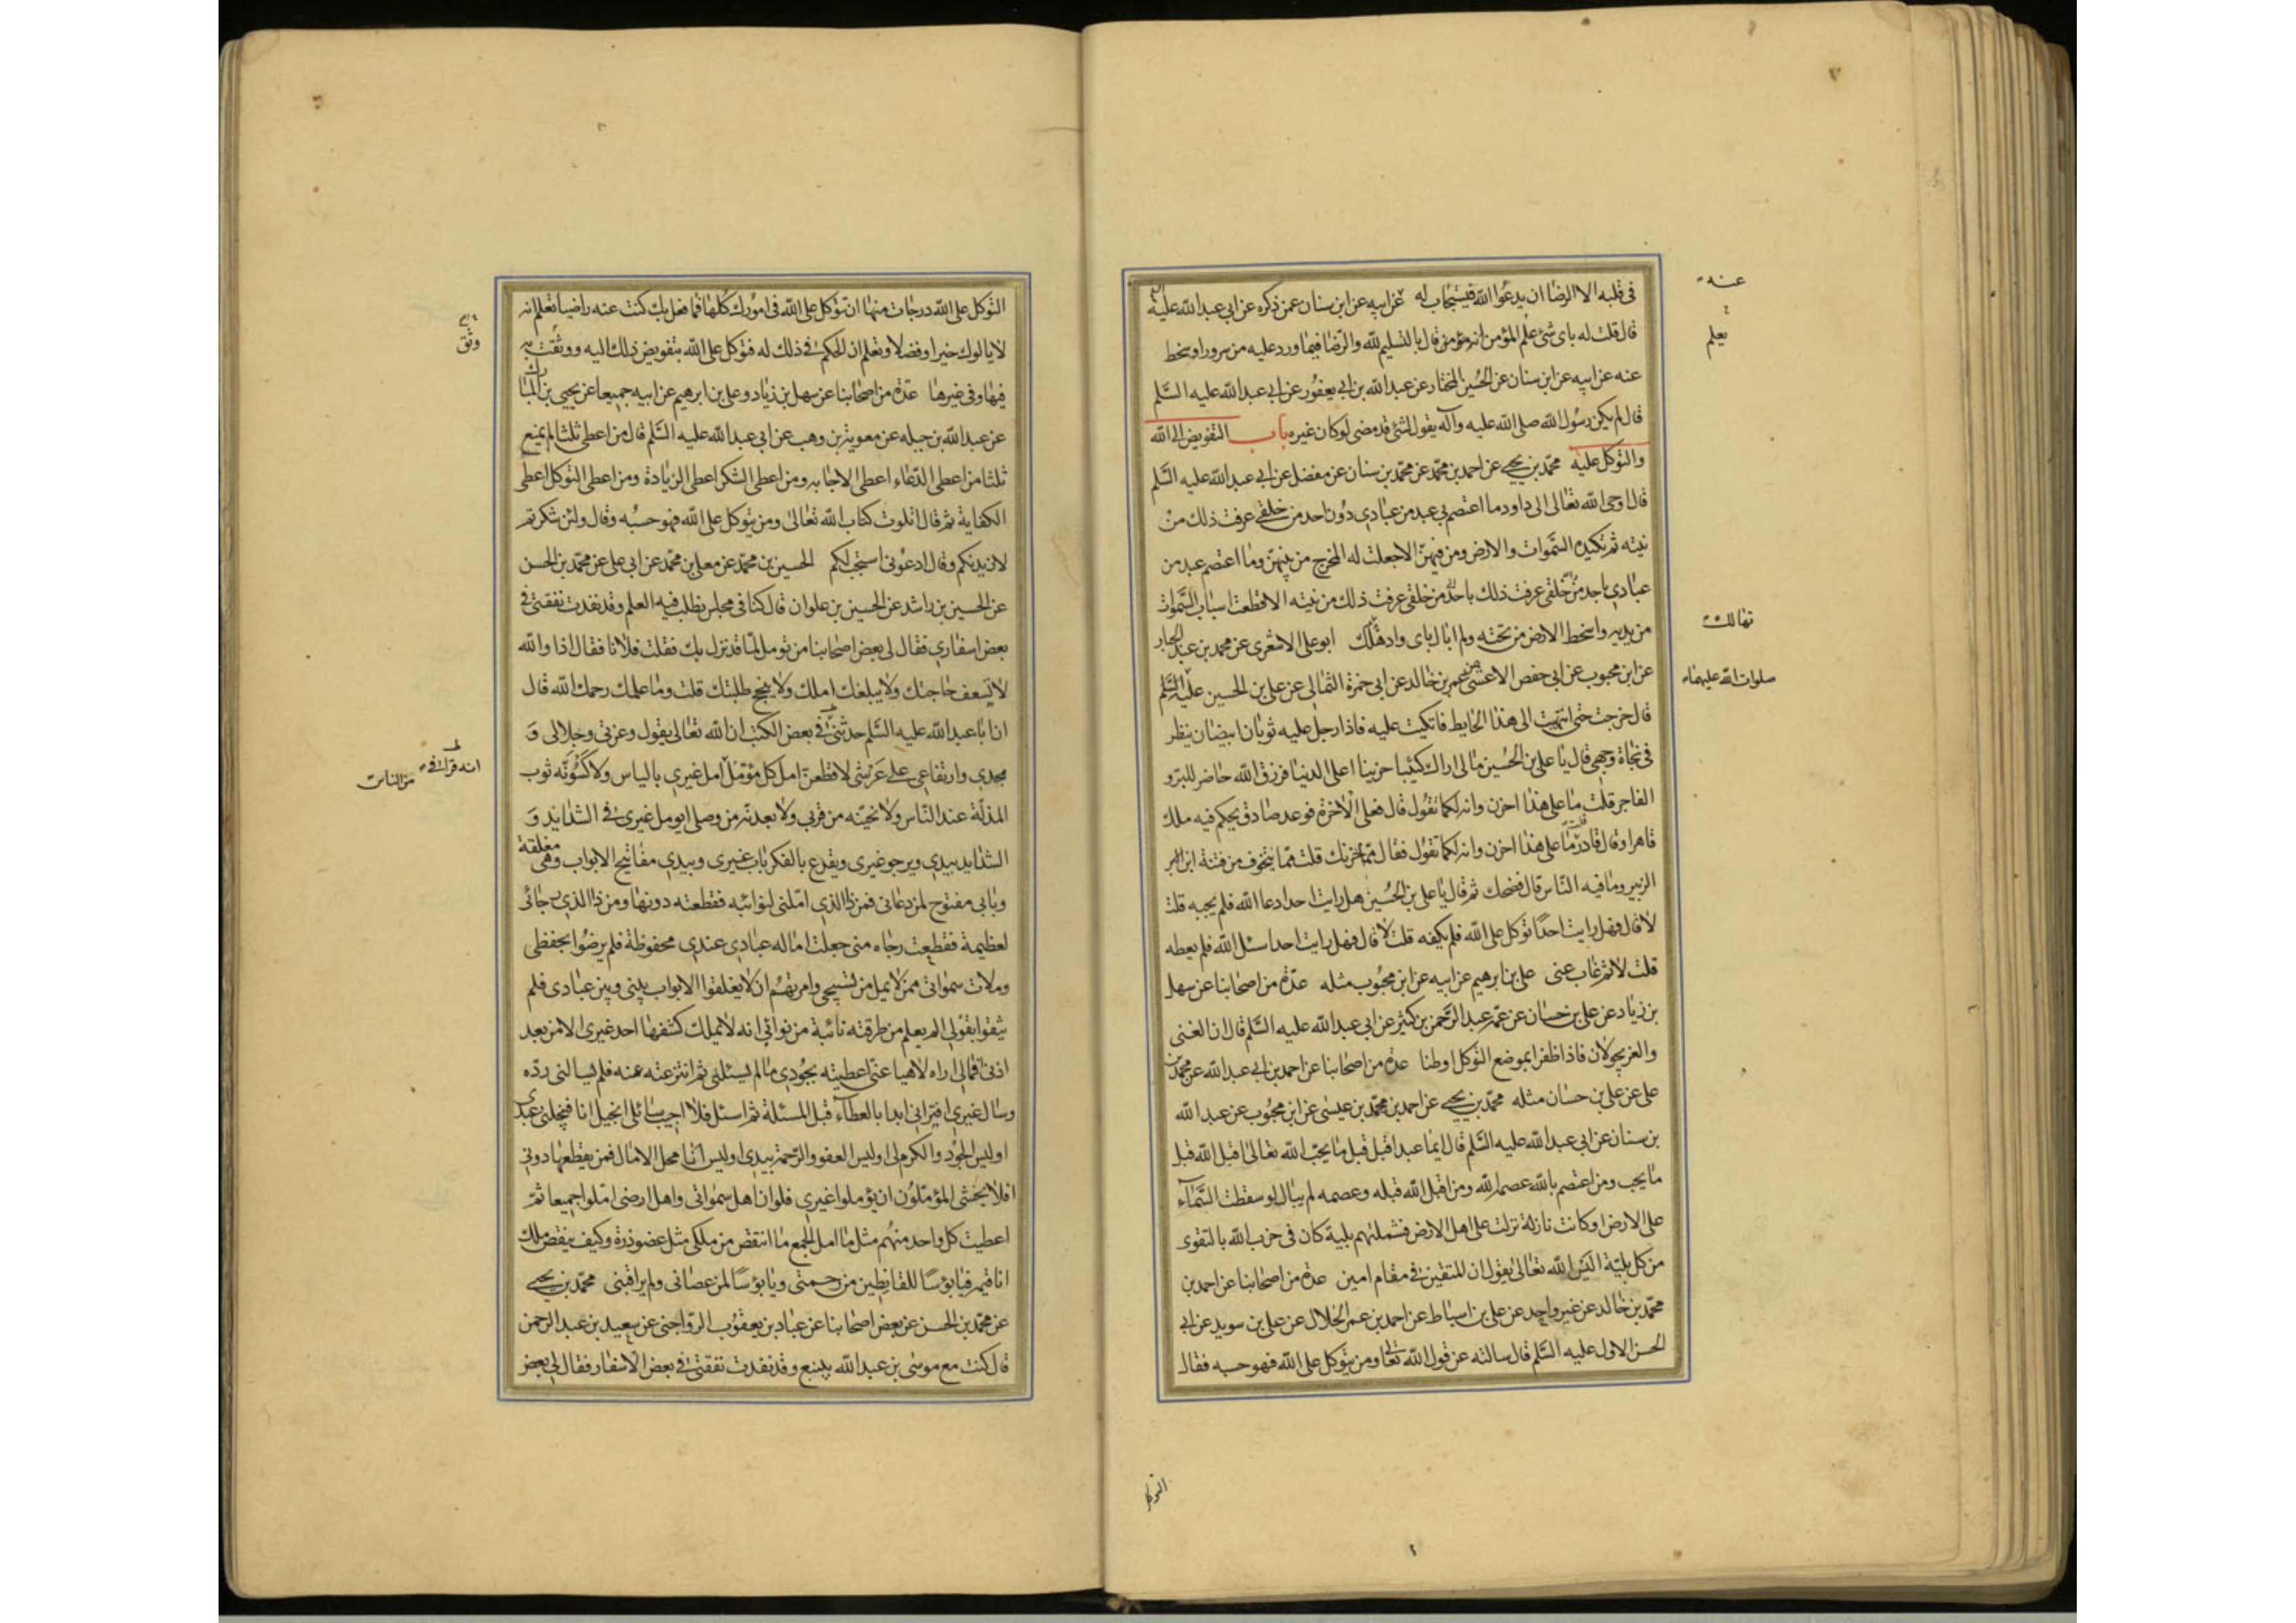 فى قلبه الا الرضا ان يدعوا الله فيستجاب له عن ابيه عن ابن سنان عمن ذكره عن ابى عبد الله عليه السلم
قال قلت له باى شئ علم المؤمن انه مؤمن قال بالتسليم لله والرضا فيما ورد عليه من سرور او سخط
عنه عن ابيه عن ابن سنان عن الحسين المختار عن عبد الله بن ابى يعفور عن ابى عبد الله عليه السلم
قال لم يكن رسول الله صلى الله عليه وآله يقول لشئ قد مضى لو كان غيره باب التفويض الى الله
والتوكل عليه محمد بن يحيى عن احمد بن محمد عن محمد بن سنان عن مفضل عن ابى عبد الله عليه السلم
قال اوحى الله تعالى الى داود ما اعتصم بى عبد من عبادى دون احد من خلقى عرفت ذلك من
نيته ثم تكيده السموات والارض ومن فيهن الا جعلت له المخرج من بينهن وما اعتصم عبد من
عبادى باحد من خلقى عرفت ذلك من نيته الا قطعت اسباب السموات
من يديه واسخط الارض من تحته ولم ابال باى واد هلك ابو على الاشعرى عن محمد بن عبد الجبار
عن ابن محبوب عن ابى حفص الاعشى عن عمر بن خالد عن ابى حمزة الثمالى عن على بن الحسين عليه السلم
قال خرجت حتى انتهيت الى هذا الحايط فاتكيت عليه فاذا رجل عليه ثوبان ابيضان ينظر
فى تجاة وجهى قال يا على بن الحسين مالى اراك كئيبا حزينا اعلى الدنيا فرزق الله حاضر للبر و
الفاجر قلت ما على هذا احزن وانه لكما تقول قال فعلى الاخرة فوعد صادق يحكم فيه ملك
قاهر او قال قادر قلت ما على هذا احزن وانه لكما تقول فقال مما حزنك قلت مما يتخوف من فتنة ابن
الزبير وما فيه الناس قال فضحك ثم قال يا على بن الحسين هل رايت احدا دعا الله فلم يجبه قلت
لا قال فهل رايت احدا توكل على الله فلم يكفه قلت لا قال فهل رايت احدا سئل الله فلم يعطه
قلت لا ثم غاب عنى على بن ابرهيم عن ابيه عن ابن محبوب مثله عدة من اصحابنا عن سهل
بن زياد عن على بن حسان عن عمه عبد الرحمن بن كثير عن ابى عبد الله عليه السلم قال ان الغنى
والعز يجولان فاذا ظفرا بموضع التوكل اوطنا عدة من اصحابنا عن احمد بن ابى عبد الله عن محمد بن
على عن على بن حسان مثله محمد بن يحيى عن احمد بن محمد بن عيسى عن ابن محبوب عن عبد الله
بن سنان عن ابى عبد الله عليه السلم قال ايما عبد اقبل قبل ما يحب الله تعالى اقبل الله قبل
ما يحب ومن اعتصم بالله عصمه الله ومن اقبل الله قبله وعصمه لم يبال لو سقطت السماء
على الارض او كانت نازلة نزلت على اهل الارض فشملتهم بلية كان فى حزب الله بالتقوى
من كل بلية اليس الله تعالى يقول ان المتقين فى مقام امين عدة من اصحابنا عن احمد بن
محمد بن خالد عن غير واحد عن على بن اسباط عن احمد بن عمر الحلال عن على بن سويد عن ابى
الحسن الاول عليه السلم قال سالته عن قول الله تعالى ومن يتوكل على الله فهو حسبه فقال
عنه
يعلم
تهالك
صلوات الله عليهما
التوكل
التوكل على الله درجات منها ان تتوكل على الله فى امورك كلها فما فعل بك كنت عنه راضيا تعلم انه
لا يالوك خيرا وفضلا وتعلم ان الحكم فى ذلك له فتوكل على الله بتفويض ذلك اليه ووثقت به
فيها وفى غيرها عدة من اصحابنا عن سهل بن زياد وعلى بن ابرهيم عن ابيه جميعا عن يحيى بن المبارك
عن عبد الله بن جبله عن معوية بن وهب عن ابى عبد الله عليه السلم قال من اعطى ثلثا لم يمنع
ثلثا من اعطى الدعاء اعطى الاجابه ومن اعطى الشكر اعطى الزيادة ومن اعطى التوكل اعطى
الكفاية ثم قال اتلوت كتاب الله تعالى ومن يتوكل على الله فهو حسبه وقال ولئن شكرتم
لازيدنكم وقال ادعونى استجب لكم الحسين بن محمد عن معلى بن محمد عن ابى على عن محمد بن الحسن
عن الحسين بن راشد عن الحسين بن علوان قال كنا فى مجلس نطلب فيه العلم وقد نفدت نفقتى فى
بعض اسفارى فقال لى بعض اصحابنا من تومل لما قد نزل بك فقلت فلانا فقال اذا والله
لا تسعف حاجتك ولا يبلغك املك ولا ينجح طلبتك قلت وما علمك رحمك الله قال
ان ابا عبد الله عليه السلم حدثنى فى بعض الكتب ان الله تعالى يقول وعزتى وجلالى و
مجدى وارتفاعى على عرشى لاقطعن امل كل مؤمل امل غيرى بالياس ولاكسونه ثوب
المذلة عند الناس ولانحينه من قربى ولابعدنه من وصلى ايومل غيرى فى الشدايد و
الشدايد بيدى ويرجو غيرى ويقرع بالفكر باب غيرى وبيدى مفاتيح الابواب وهى مغلقة
وبابى مفتوح لمن دعانى فمن ذا الذى املنى لنوائبه فقطعته دونها ومن ذا الذى رجانى
لعظيمة فقطعت رجاه منى جعلت امال عبادى عندى محفوظة فلم يرضوا بحفظى
وملات سمواتى ممن لا يمل من تسبيحى وامرتهم ان لا يغلقوا الابواب بينى وبين عبادى فلم
يثقوا بقولى الم يعلم من طرقته نائبة من نوائبى انه لا يملك كشفها احد غيرى الا من بعد
اذنى فمالى اراه لاهيا عنى اعطيته بجودى ما لم يسئلنى ثم انتزعته عنه فلم يسالنى رده
وسال غيرى افترانى ابدا بالعطآء قبل المسئلة ثم اسئل فلا اجيب سائلى ابخيل انا فيبخلنى عبدى
اوليس الجود والكرم لى اوليس العفو والرحمة بيدى اوليس انا محل الامال فمن يقطعها دونى
افلا يخشى المؤملون ان يؤملوا غيرى فلو ان اهل سمواتى واهل ارضى املوا جميعا ثم
اعطيت كل واحد منهم مثل ما امل الجمع ما انتقص من ملكى مثل عضو ذرة وكيف ينقص ملك
انا قيمه فيا بؤسا للقانطين من رحمتى ويا بؤسا لمن عصانى ولم يراقبنى محمد بن يحيى
عن محمد بن الحسن عن بعض اصحابنا عن عباد بن يعقوب الرواجنى عن سعيد بن عبد الرحمن
قال كنت مع موسى بن عبد الله بينبع وقد نفدت نفقتى فى بعض الاسفار فقال لى بعض
وثق
انه قرا فى
من الناس